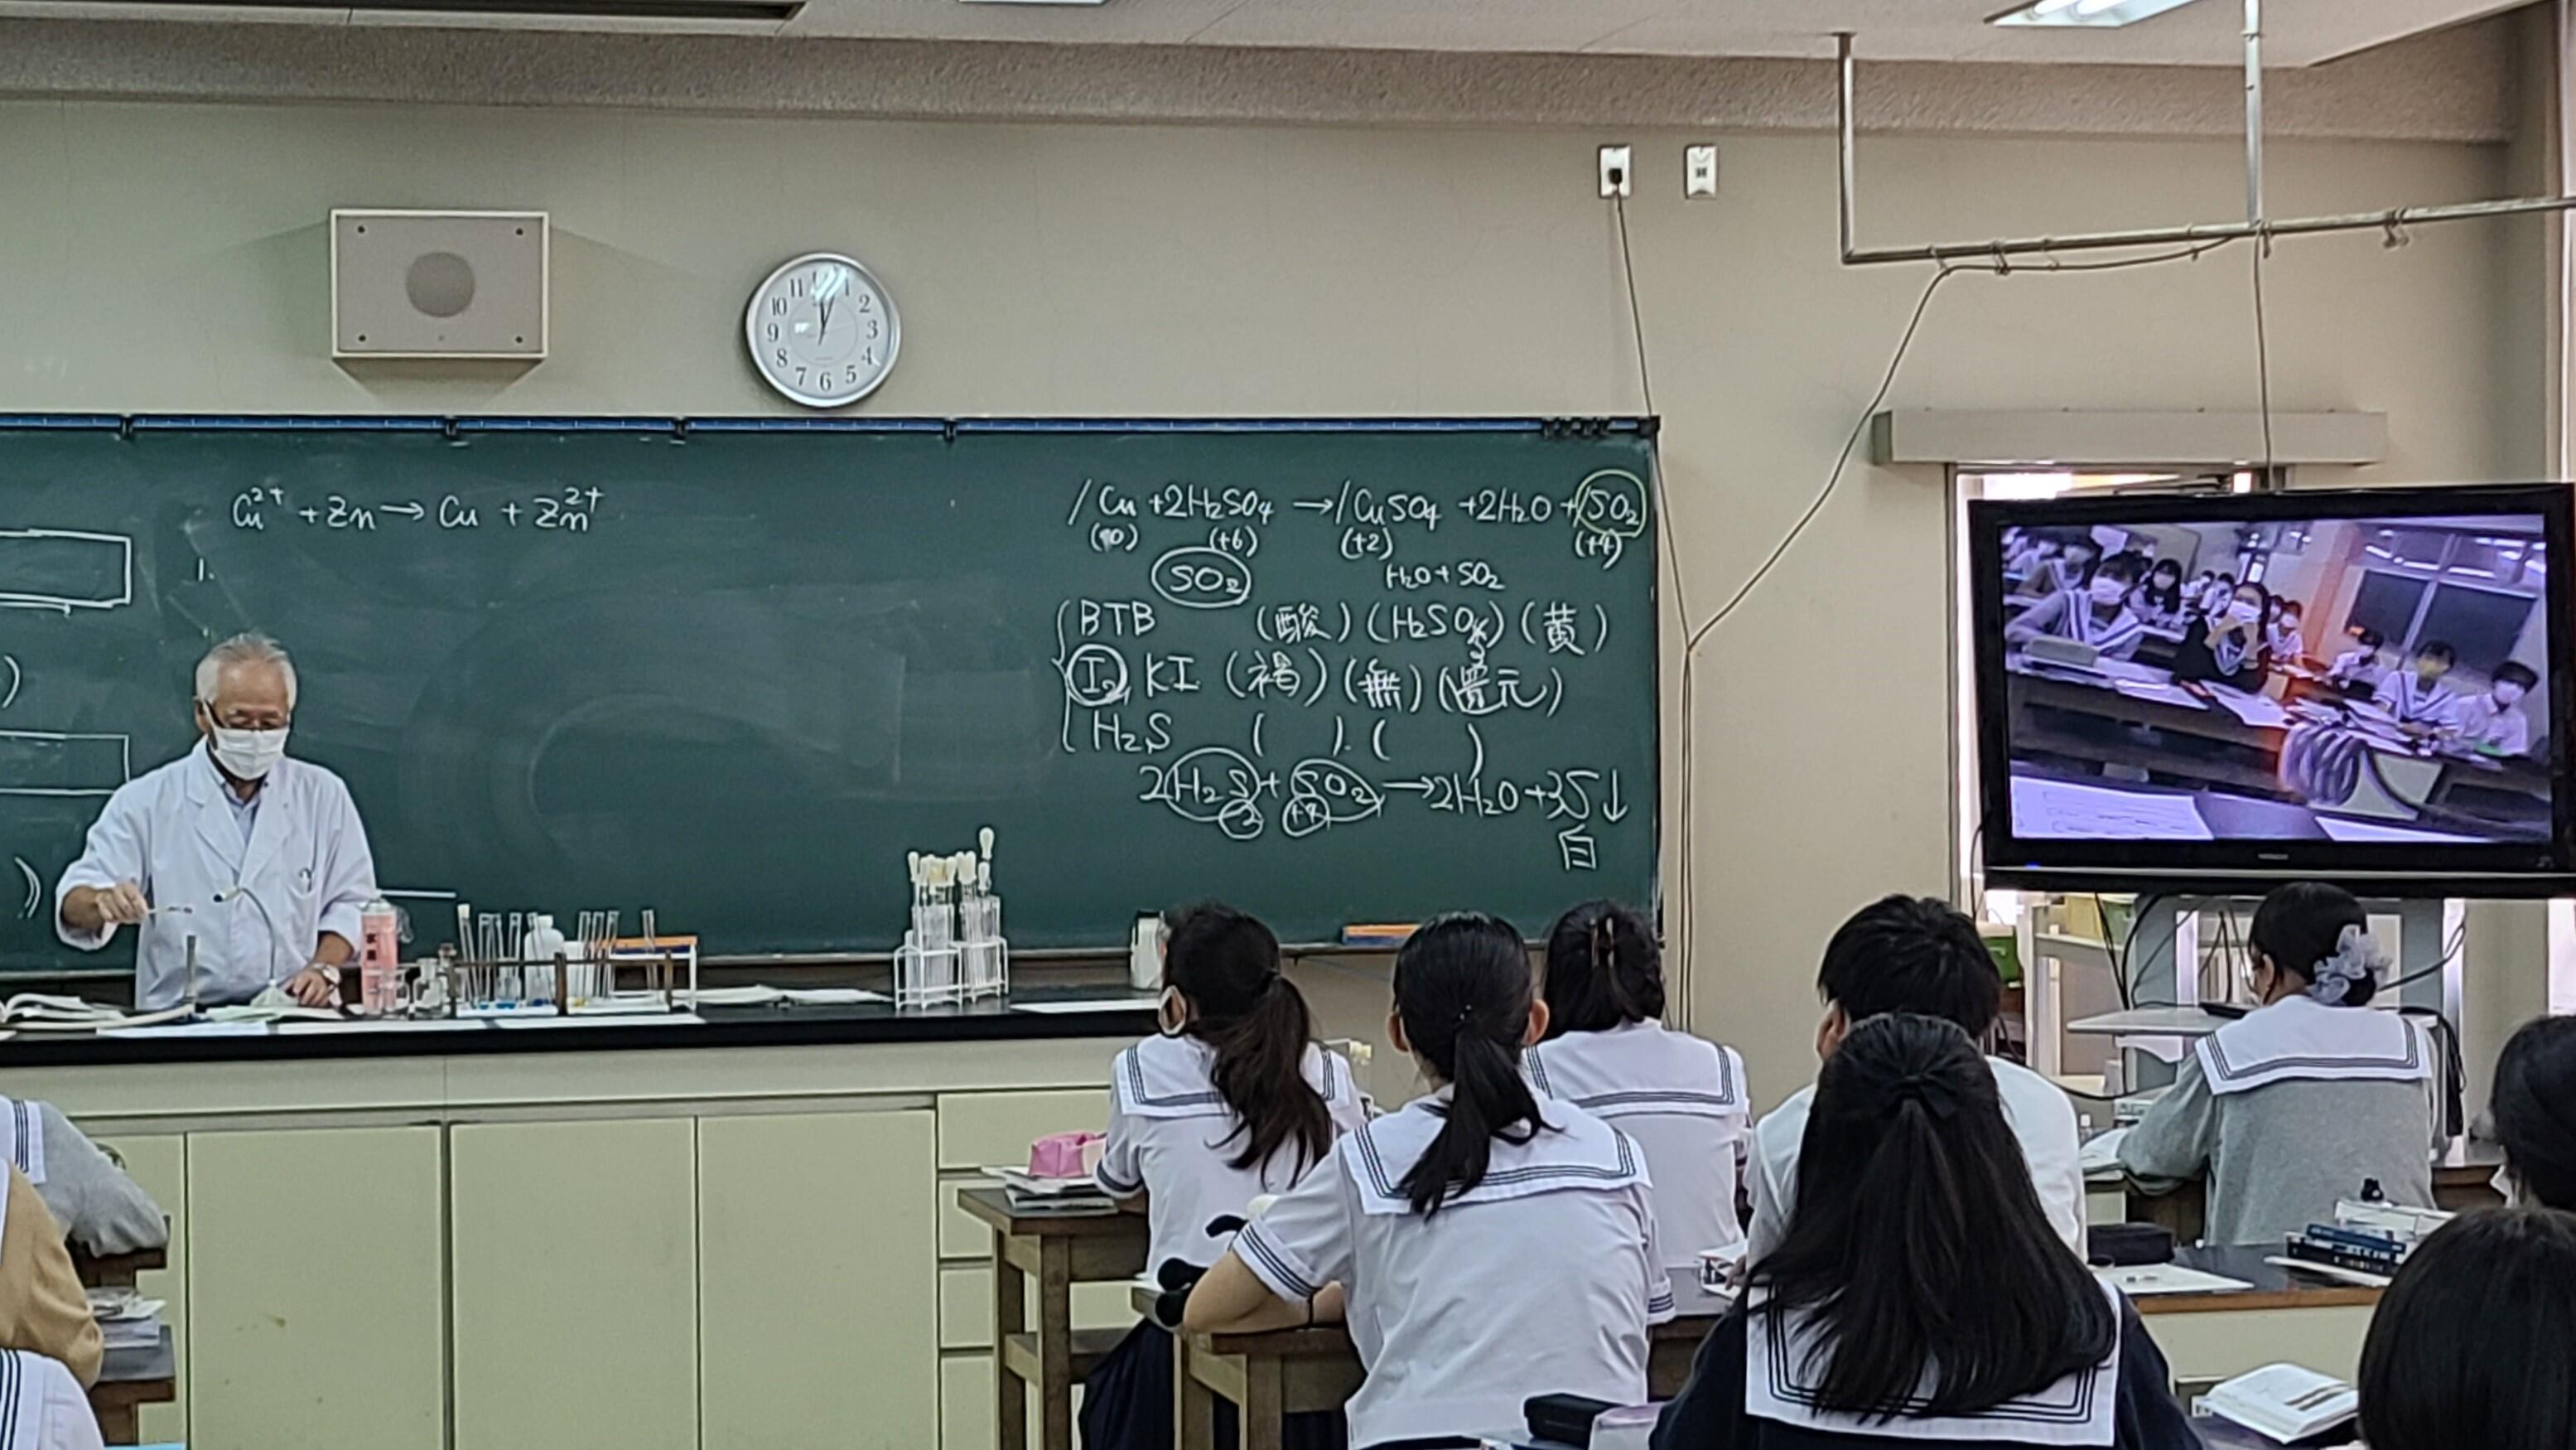 11 12 1 2 3 4 5 6 7 8 9 10
Cu²⁺ + Zn → Cu + Zn²⁺
1.
1Cu + 2H₂SO₄ → 1CuSO₄ + 2H₂O + 1SO₂
(±0) (+6) (+2) (+4)
SO₂ H₂O + SO₂
BTB (酸) (H₂SO₃) (黄)
I₂, KI (褐) (無) (還元)
H₂S ( ). ( )
2H₂S + SO₂ → 2H₂O + 3S↓
-2 +4
白